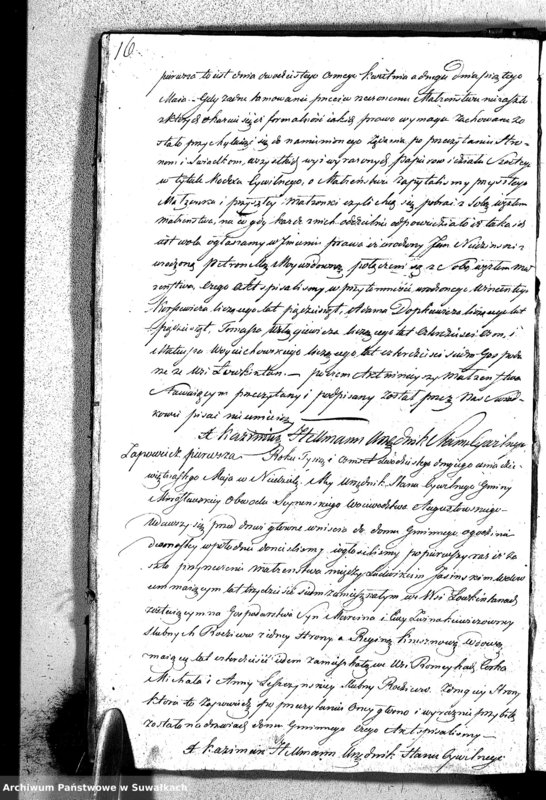 16
pierwsza to iest dnia dwudziestego osmego Kwietnia a druga dnia piątego
Maia. Gdy żadne tamowanie przeciw rzeczonemu Małżeństwu nie zaszło
z których okazuie się iż formalność iakiey prawo wymaga zachowane zo
stały przychylaiąc się do namienionego Żądania po przeczytaniu Stro-
nom i Świadkom, wszystkich wyż wyrażonych papierów i działu szóstego
w tytule Kodexu Cywilnego, o Małżeństwie zapytaliśmy przyszłego
Małżonka i przyszłey Małżonki czyli chcą się pobrać z sobą węzłem
małżeństwa, na co gdy każde z nich oddzielnie odpowiedziało iż taka iest
ich wola ogłaszamy w Imieniu prawa iż urodzony Jan
urodzoną Petronellą połączeni są ze sobą węzłem mał
żeństwa, czego akt spisaliśmy w przytomności urodzonego Wincentego
liczącego lat pięćdziesiąt, Adama Dopkiewicza liczącego lat
pięćdziesiąt, Tomasza liczącego lat czterdzieści osm, i
Mateusza Woyciechowskiego liczącego lat czterdzieści siedm Gospoda
rze ze Wsi — poczem Akt ninieyszy małżeństwa
Stawaiącym przeczytany i podpisany został przez Nas Świad
kowie pisać nieumieią
X. Kazimierz Hellmann Urzędnik Stanu Cywilnego
Zapowiedź pierwsza Roku Tysiąc Osmset Dwudziestego drugiego dnia dzie
więtnastego Maja w Niedzielę. My Urzędnik Stanu Cywilnego Gminy
Obwodu Seynenskiego Woiewództwa Augustowskiego
Udawszy się przed drzwi główne wniscia do domu Gminnego o godzinie
dwunastey w południe donieśliśmy i ogłosiliśmy po pierwszy raz iż za
szło przyrzeczenie małżeństwa między Ludwikiem Jasińskim wdow
cem maiącym lat trzydzieści siedm zamieszkałym we Wsi
zostaiącym na Gospodarstwie Syn Marcina i Ewy
Ślubnych Rodziców z iedney strony a Reginą wdową
maiącą lat czterdzieści ieden zamieszkałą we Wsi Romeykach Corka
Michała i Anny Ślubnych Rodziców. z drugiey Strony
która to zapowiedź po przeczytaniu oney głośno i wyraźnie przybita
została na drzwiach domu Gminnego czego Akt spisaliśmy
X. Kazimierz Hellmann Urzędnik Stanu Cywilnego
Archiwum Państwowe w Suwałkach